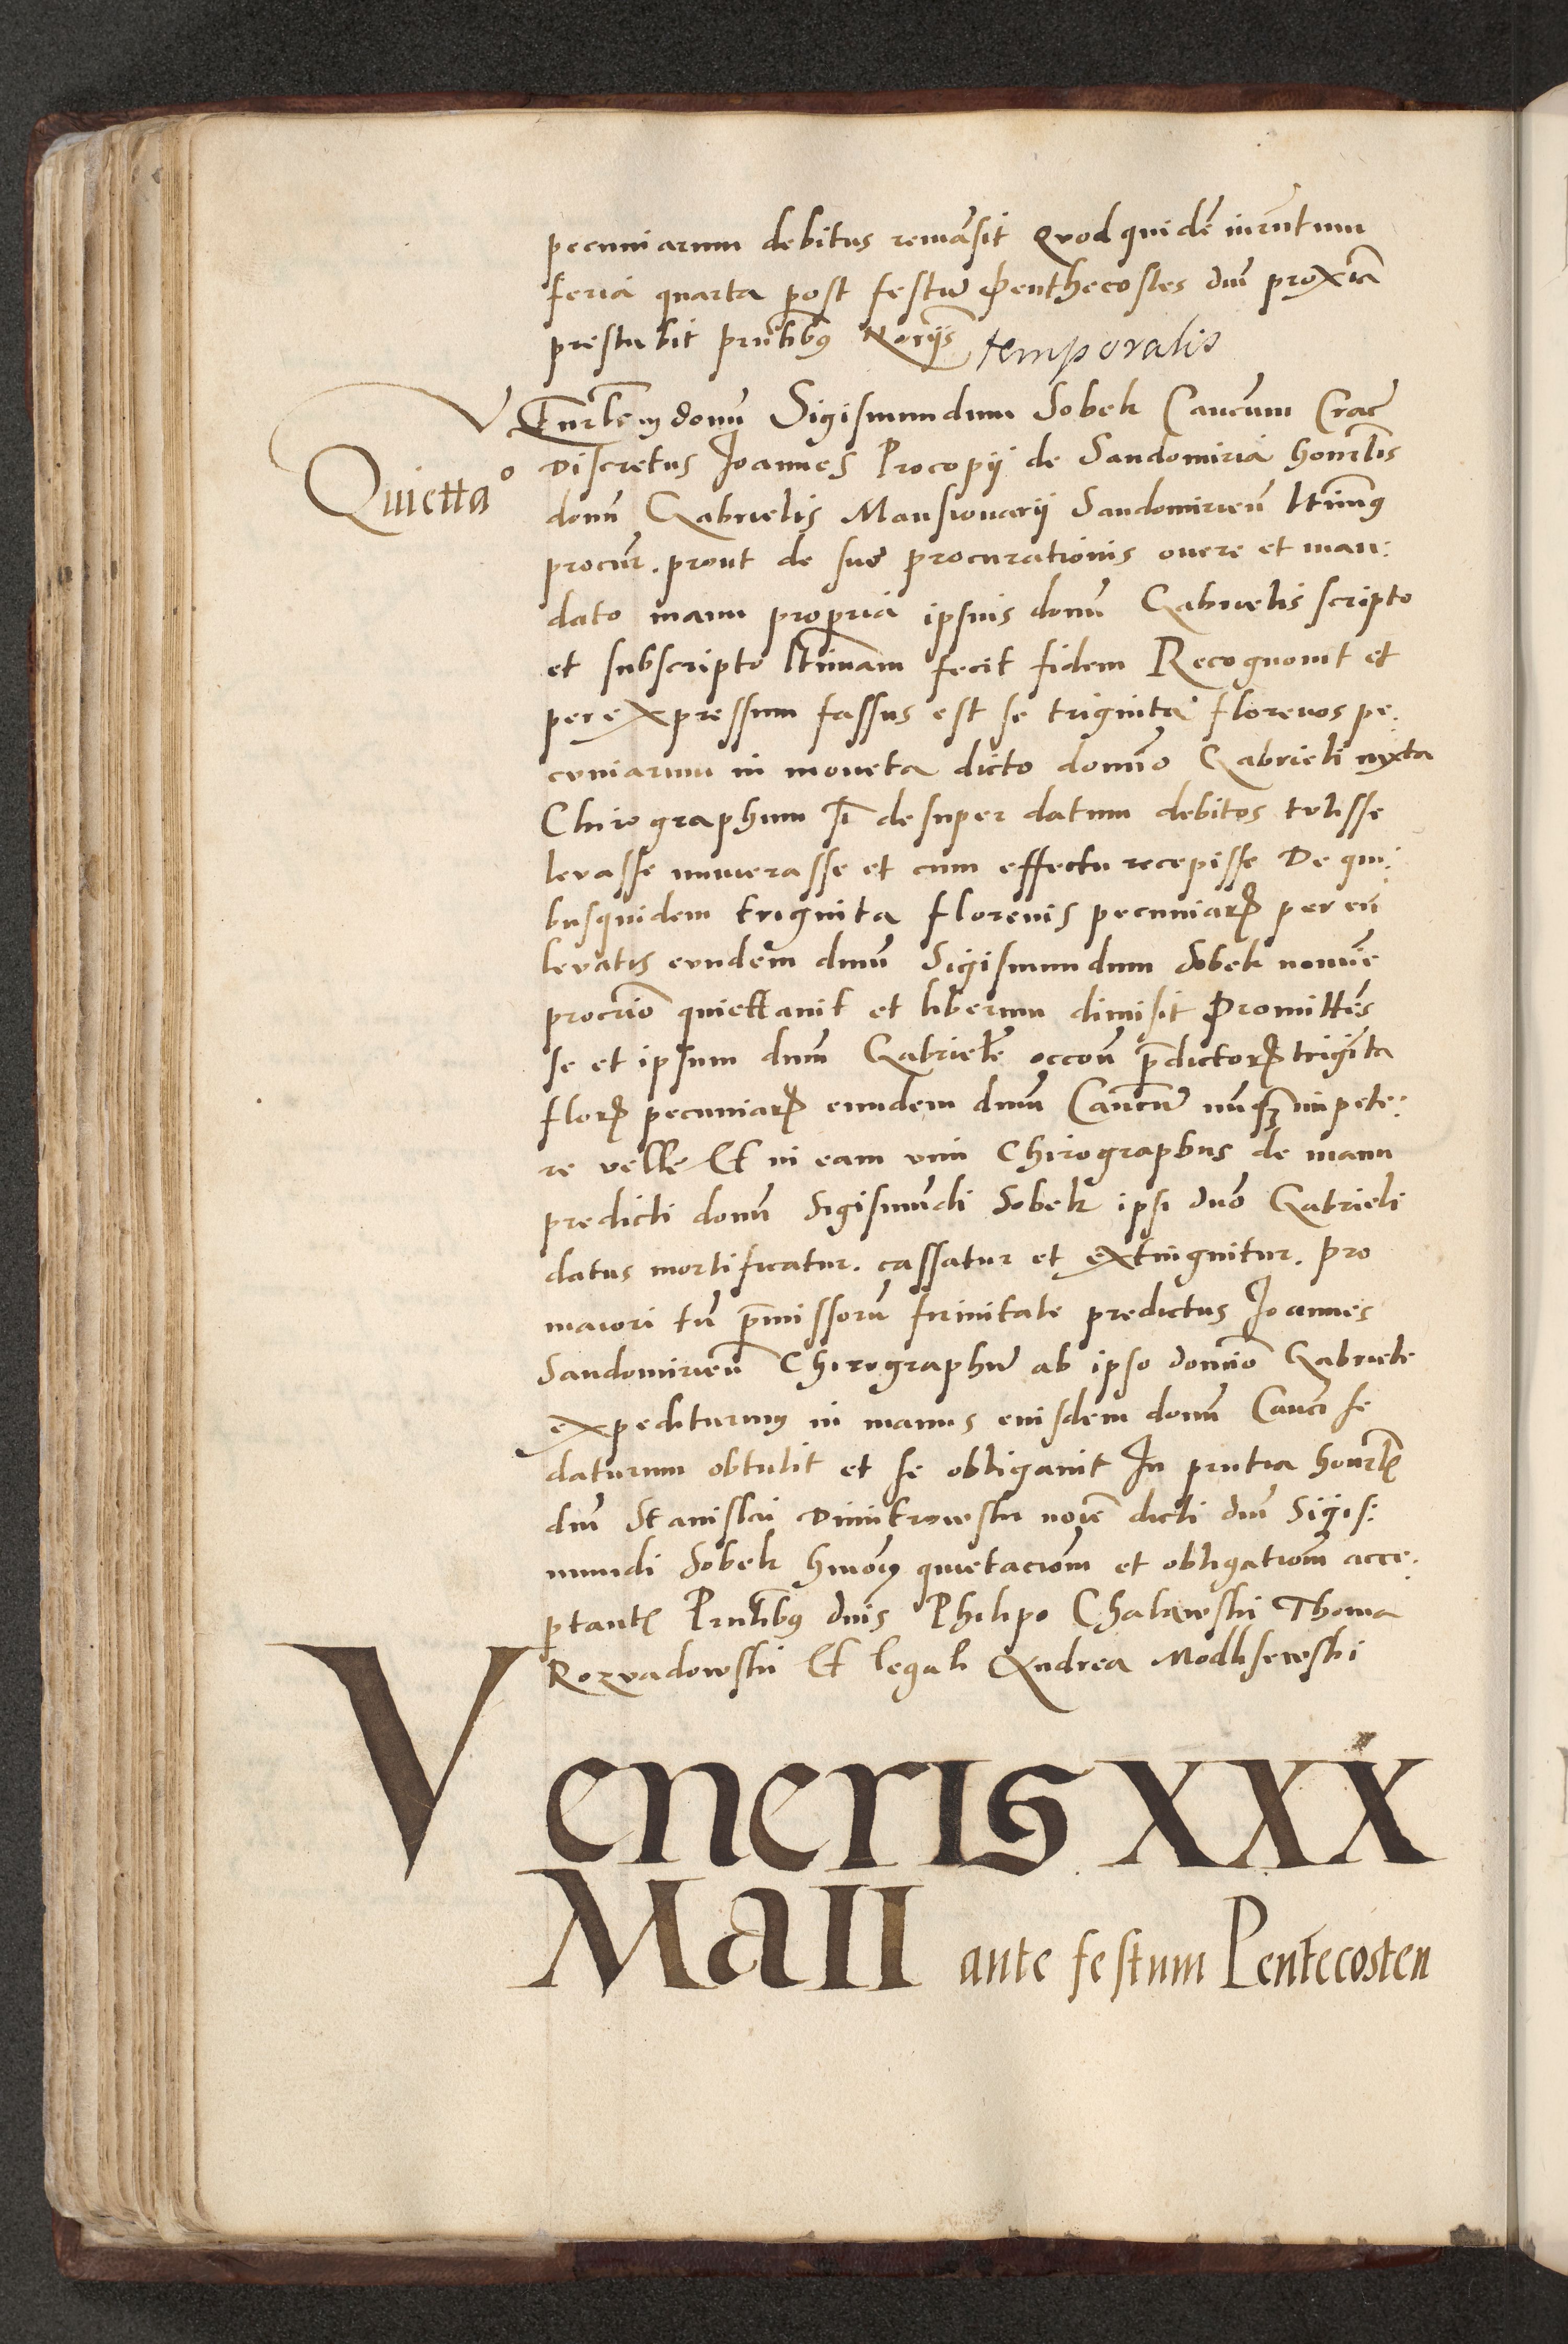 pecuniarum debitus remãsit Quod quidẽ iurñtum
feria quarta post festũ Penthecostes dñi proxĩa
prestabit prñtibꝫ Notrijs temporalis
Quietta°
Eurlem donũ Sigismundum Sobek Cancum Crac̃
Discretus Joannes Procopij de Sandomiria honrlis
domĩ Gabrielis Mansionarij Sandomirieñ ltimꝫ
procur̃. prout de suo procurationis onere et man:
dato manu propria ipsius domĩ Gabrielis scripto
et subscripto ltimam fecit fidem Recognovit et
per expressum fassus est se triginta florenos pe:
cuniarum in moneta dicto domĩo Gabrieli iuxta
Chirographum sĩ desuper datum debitos tulisse
levasse numerasse et cum effectu recepisse De qui:
busquidem triginta florenis pecuniarꝝ per eũ
levatis eundem dnũm Sigismundum Sobek nomĩe
procrĩo quiettavit et liberum dimisit Promittẽs
se et ipsum dnũm Gabrielẽ occoñ p̃dictorꝝ trigĩta
florꝝ pecuniarꝝ eundem dnũm Cancũ nunqꝫ impete:
re velle Et in eam vim Chirographus de manu
predicti domĩ Sigismũdi Sobek ipsi dnõ Gabrieli
datus mortificatur. cassatur et extinguitur. pro
maiori tñ p̃missorũ firmitate predictus Joannes
Sandomirieñ Chirographũ ab ipso domĩo Gabriele
expediturum in manus eiusdem domĩ Canci se
daturum obtulit et se obligavit In prntia honrlẽ
dñi Stanislai Dimitrowski noĩe dicti dñi Sigis:
mundi Sobek hmõi quietacionẽ et obligationẽ acce:
ptantẽ Prntibꝫ dnis Philipo Chalawski Thoma
Rozvadowski Et legali Andrea Modlisewski
Veneris XXX
Maii ante festum Pentecosten